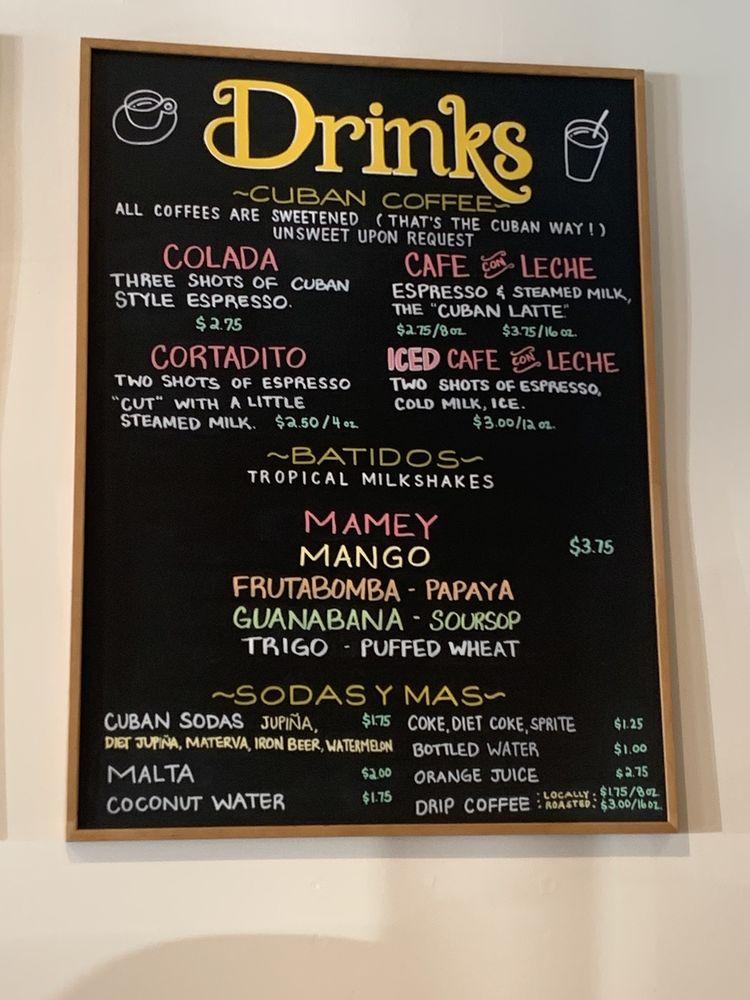 Drinks
~CUBAN COFFEE~
ALL COFFEES ARE SWEETENED (THAT'S THE CUBAN WAY!)
UNSWEET UPON REQUEST
COLADA
THREE SHOTS OF CUBAN
STYLE ESPRESSO.
$2.75
CAFE CON LECHE
ESPRESSO & STEAMED MILK,
THE "CUBAN LATTE"
$2.75/8oz $3.75/16oz.
CORTADITO
TWO SHOTS OF ESPRESSO
"CUT" WITH A LITTLE
STEAMED MILK. $2.50/4oz
ICED CAFE CON LECHE
TWO SHOTS OF ESPRESSO,
COLD MILK, ICE.
$3.00/12oz.
~BATIDOS~
TROPICAL MILKSHAKES
MAMEY
MANGO $3.75
FRUTABOMBA - PAPAYA
GUANABANA - SOURSOP
TRIGO - PUFFED WHEAT
~SODAS Y MAS~
CUBAN SODAS JUPIÑA, $1.75
DIET JUPIÑA, MATERVA, IRON BEER, WATERMELON
MALTA $2.00
COCONUT WATER $1.75
COKE, DIET COKE, SPRITE $1.25
BOTTLED WATER $1.00
ORANGE JUICE $2.75
DRIP COFFEE : LOCALLY : $1.75/8oz
: ROASTED : $3.00/16oz.